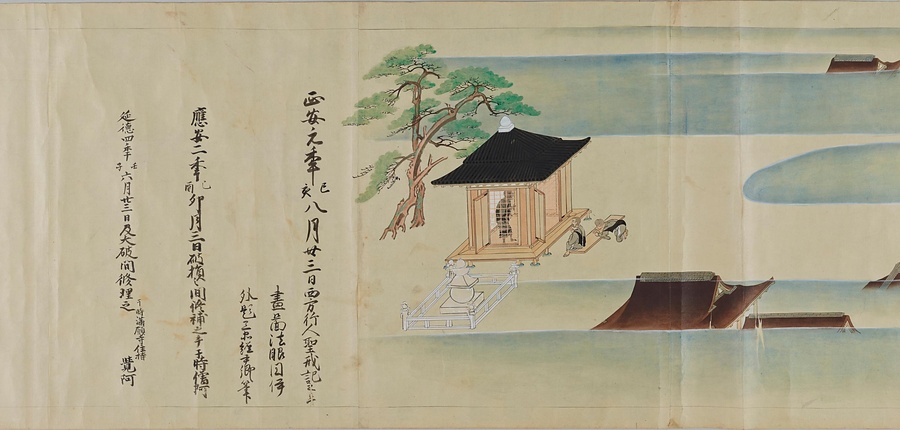 正安元季己亥八月廿三日西方行人聖戒記之畢
畫圖法眼圓伊
外題三品經尹卿筆
應安二季己酉卯月三日破損之間修補之畢于時
延德四年壬子六月廿三日及大破間修理之于時滿願寺住持覺阿